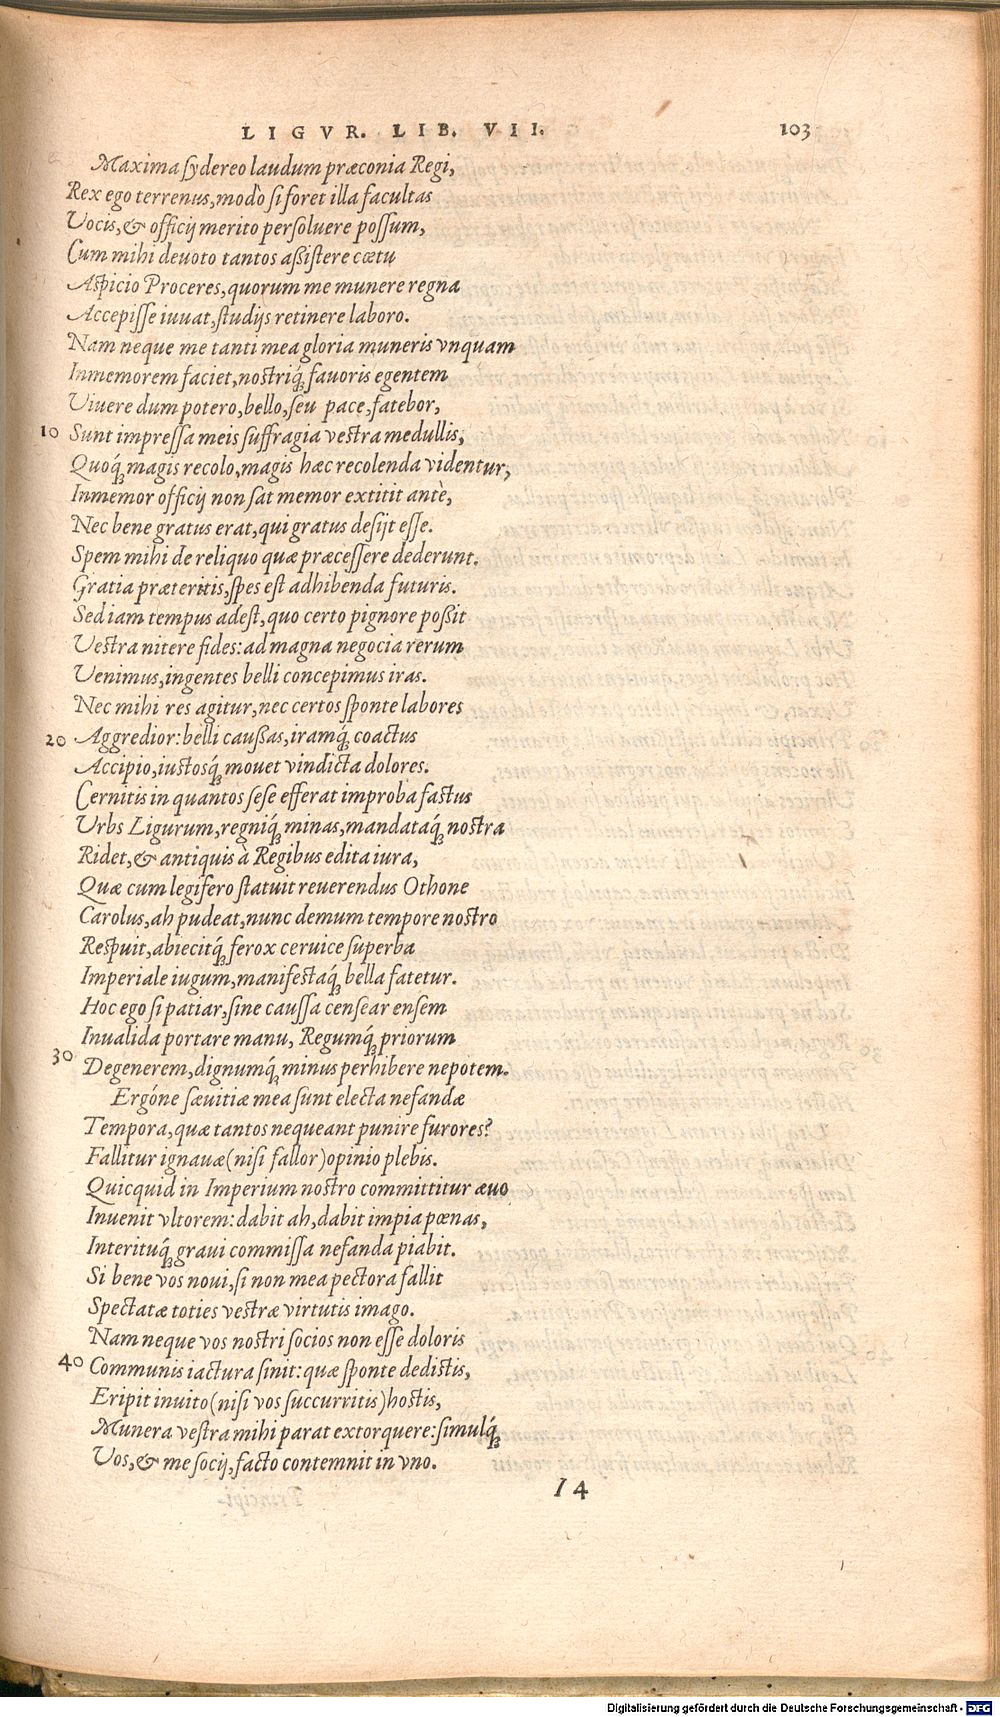 LIGVR. LIB. VII. 103
Maxima sydereo laudum præconia Regi,
Rex ego terrenus, modò si foret illa facultas
Vocis, & officij merito persoluere possum,
Cum mihi deuoto tantos aßistere cœtu
Aspicio Proceres, quorum me munere regna
Accepisse iuuat, studijs retinere laboro.
Nam neque me tanti mea gloria muneris vnquam
Inmemorem faciet, nostriq́; fauoris egentem
Viuere dum potero, bello, seu pace, fatebor,
10 Sunt impressa meis suffragia vestra medullis,
Quoq́; magis recolo, magis hæc recolenda videntur,
Inmemor officij non sat memor extitit antè,
Nec bene gratus erat, qui gratus desijt esse.
Spem mihi de reliquo quæ præcessere dederunt.
Gratia præteritis, spes est adhibenda futuris.
Sed iam tempus adest, quo certo pignore poßit
Vestra nitere fides: ad magna negocia rerum
Venimus, ingentes belli concepimus iras.
Nec mihi res agitur, nec certos sponte labores
20 Aggredior: belli caussas, iramq́; coactus
Accipio, iustosq́; mouet vindicta dolores.
Cernitis in quantos sese efferat improba fastus
Urbs Ligurum, regniq́; minas, mandataq́; nostra
Ridet, & antiquis à Regibus edita iura,
Quæ cum legifero statuit reuerendus Othone
Carolus, ah pudeat, nunc demum tempore nostro
Respuit, abiecitq́; ferox ceruice superba
Imperiale iugum, manifestaq́; bella fatetur.
Hoc ego si patiar, sine caussa censear ensem
Inualida portare manu, Regumq́; priorum
30 Degenerem, dignumq́; minus perhibere nepotem.
Ergóne sæuitiæ mea sunt electa nefandæ
Tempora, quæ tantos nequeant punire furores?
Fallitur ignauæ (nisi fallor) opinio plebis.
Quicquid in Imperium nostro committitur æuo
Inuenit vltorem: dabit ah, dabit impia pœnas,
Interituq́; graui commissa nefanda piabit.
Si bene vos noui, si non mea pectora fallit
Spectatæ toties vestræ virtutis imago.
Nam neque vos nostri socios non esse doloris
40 Communis iactura sinit: quæ sponte dedistis,
Eripit inuito (nisi vos succurritis) hostis,
Munera vestra mihi parat extorquere: simulq́;
Vos, & me socij, facto contemnit in vno.
I 4
Digitalisierung gefördert durch die Deutsche Forschungsgemeinschaft - DFG